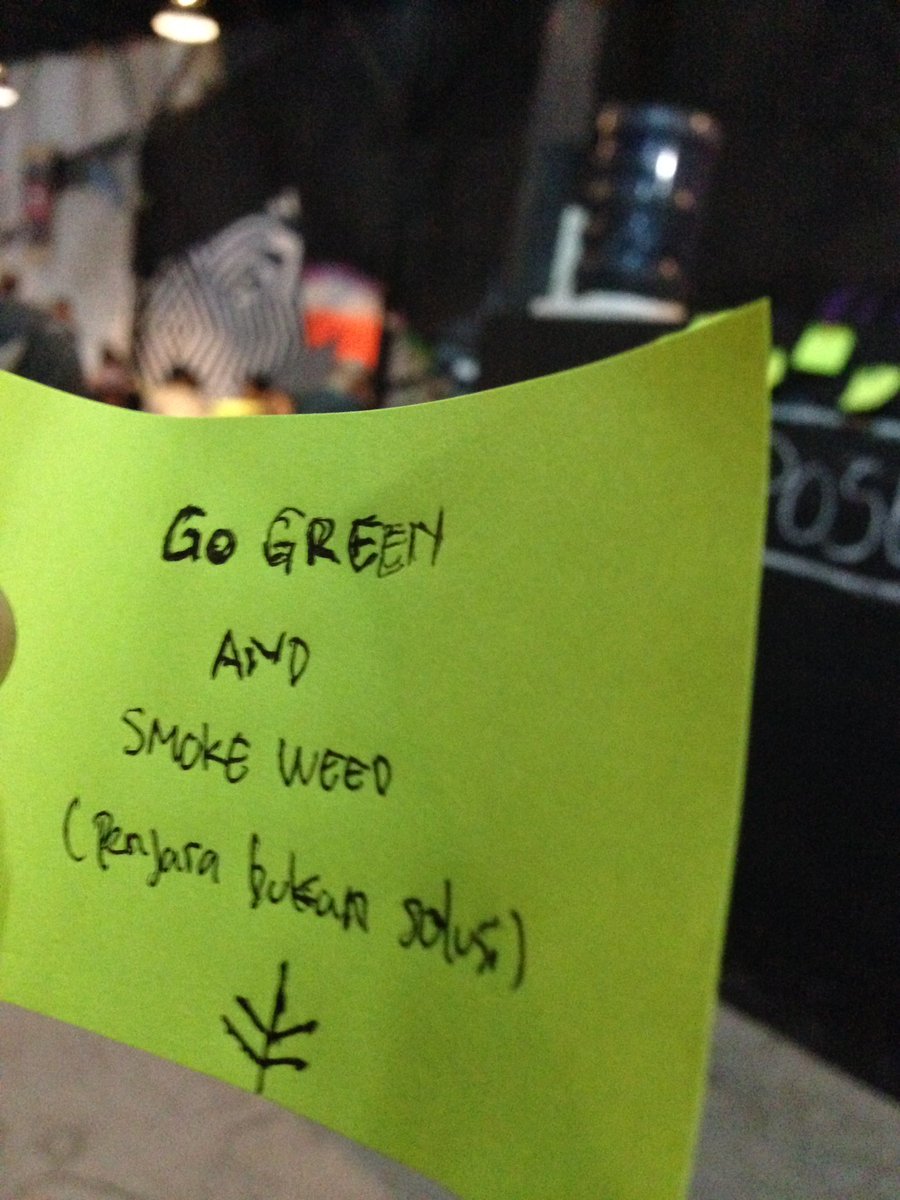 GO GREEN
AND
SMOKE WEED
(Penjara bukan solusi)